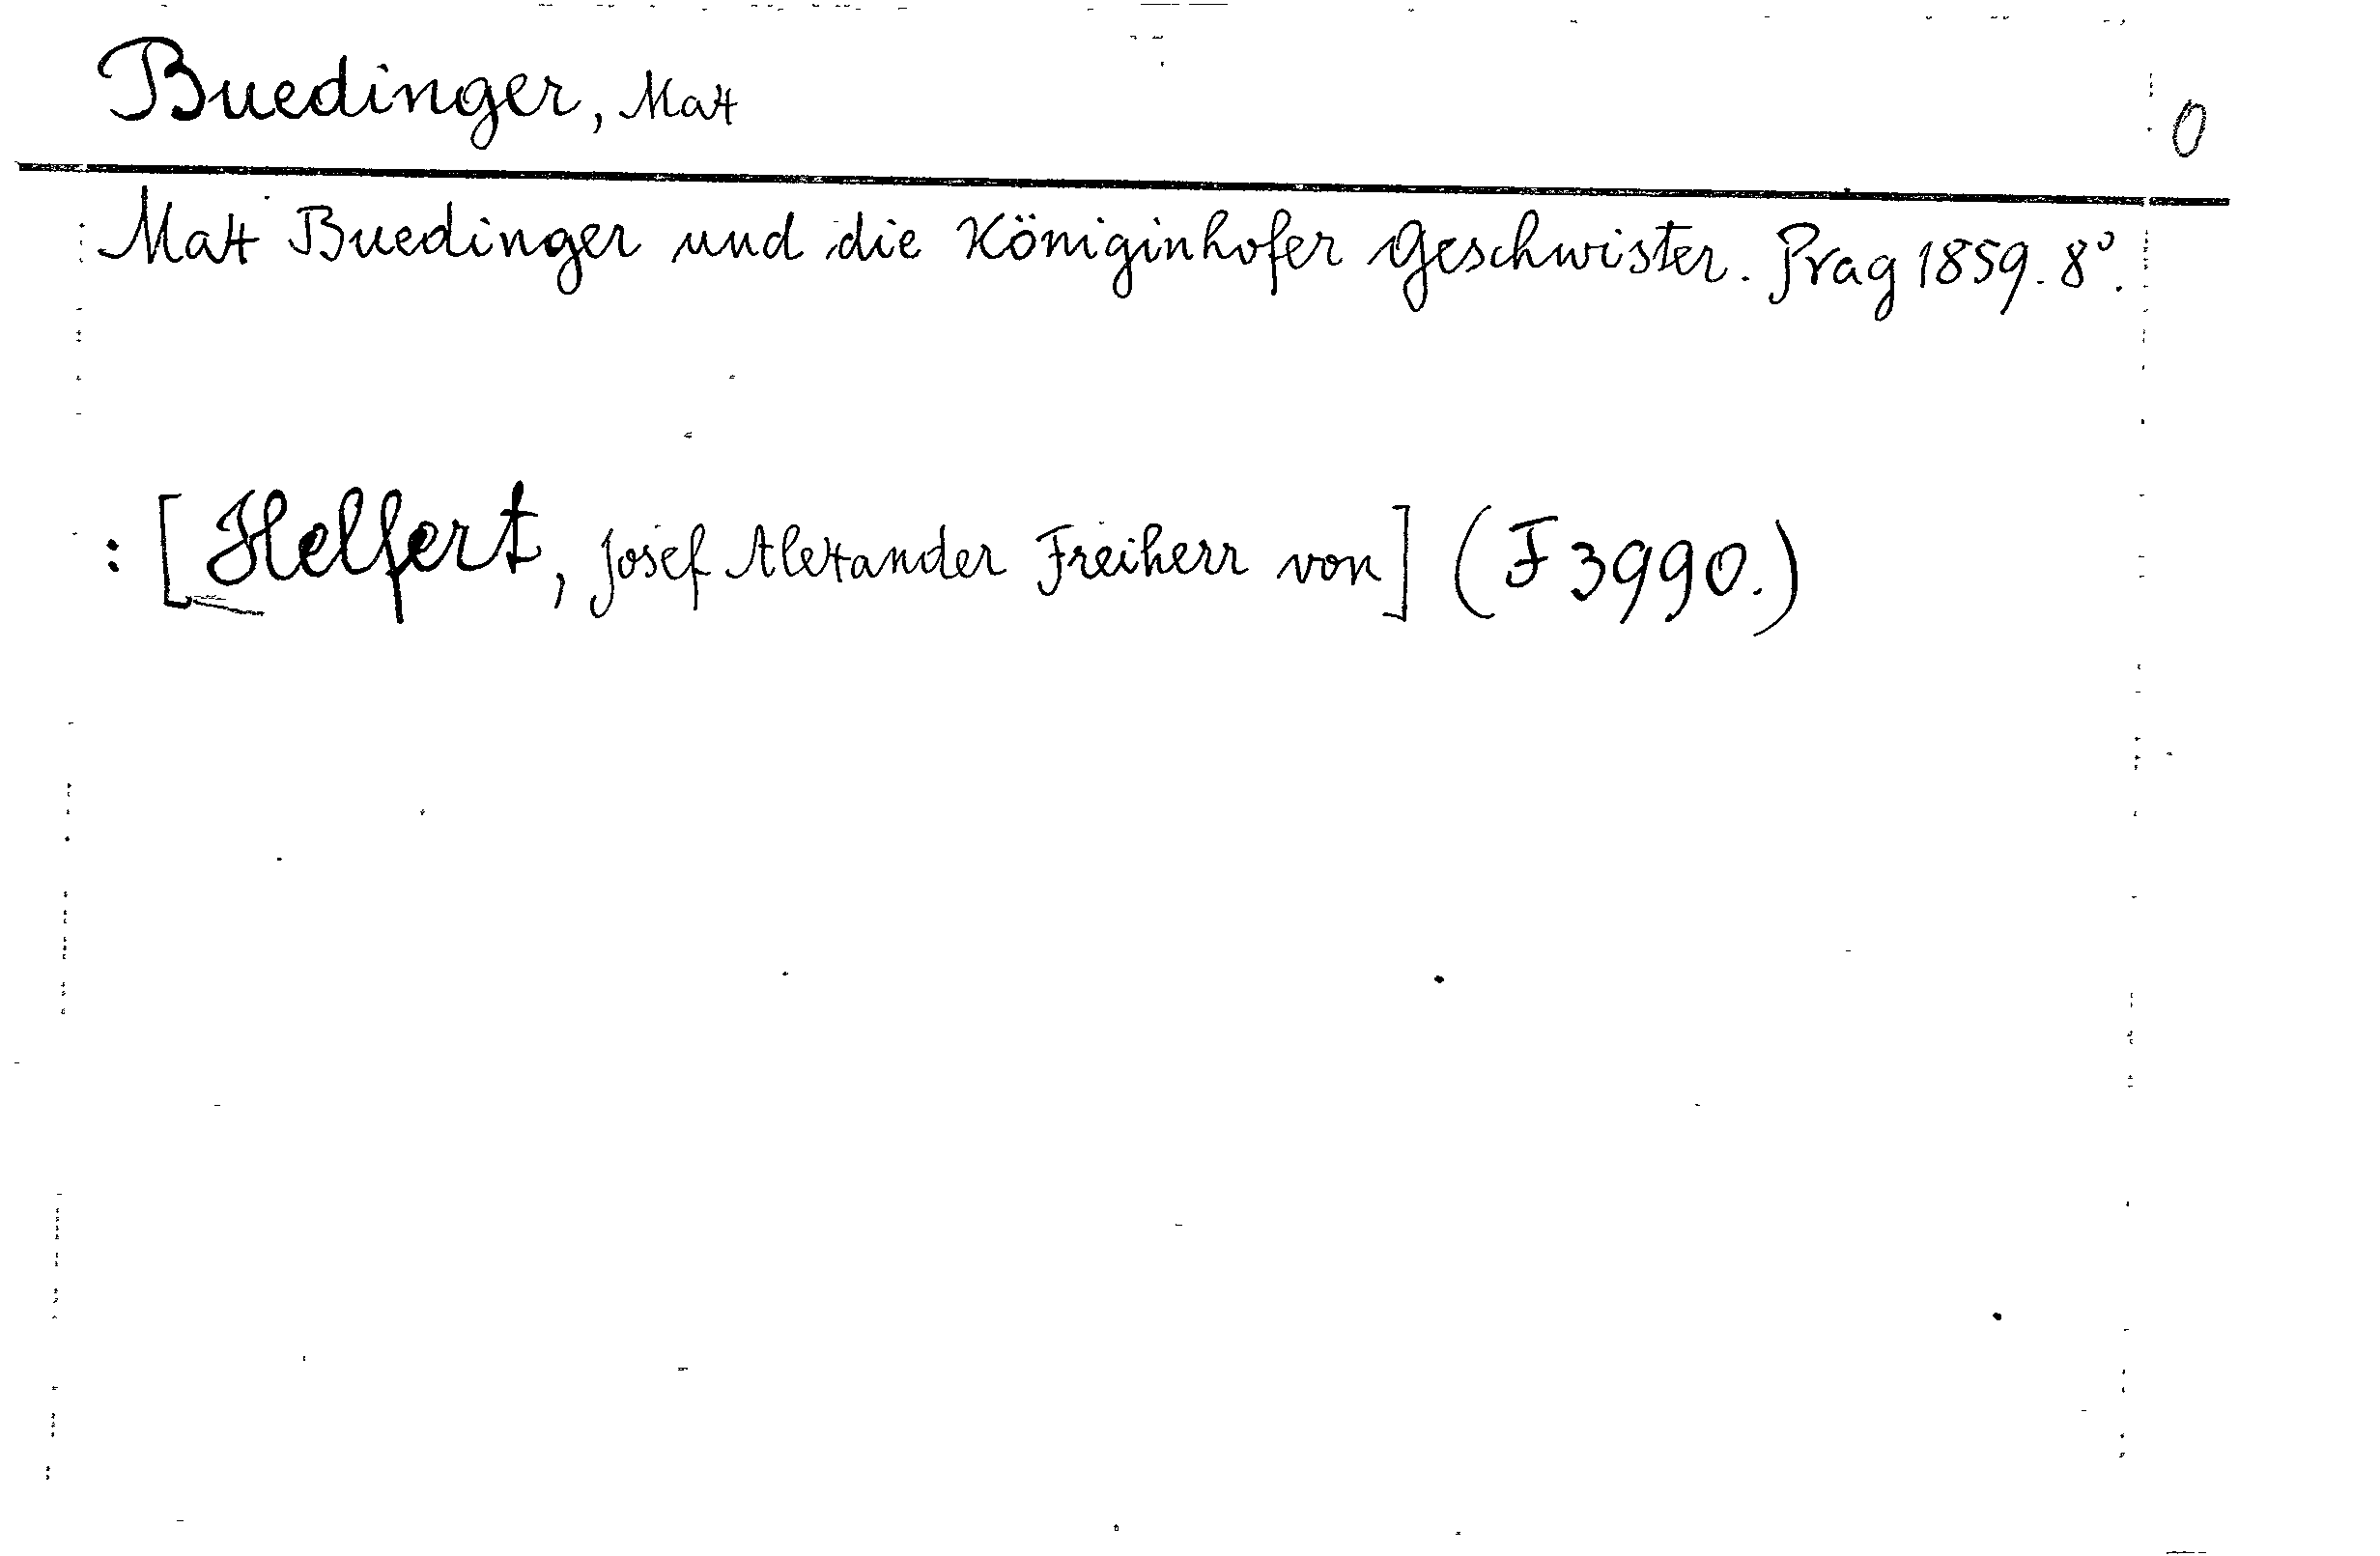 Buedinger, Max
0
Max Buedinger und die Königinhofer Geschwister. Prag 1859. 8°.
: [Helfert, Josef Alexander Freiherr von] (F 3990.)